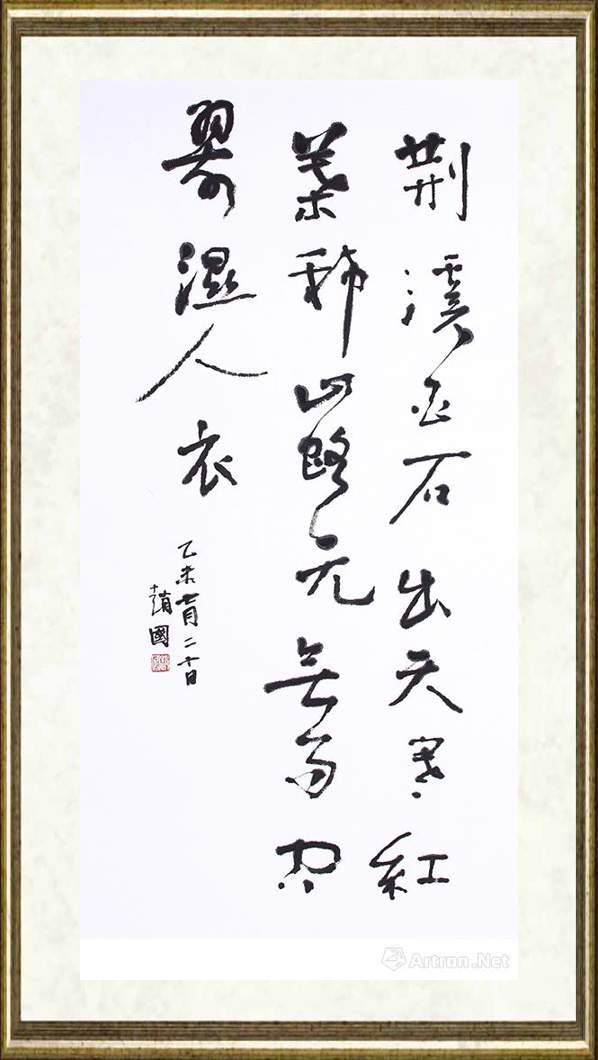 荆溪白石出天寒红
葉稀山路元無雨空
翠濕人衣
乙未七月二十日
趙國
Artron.Net